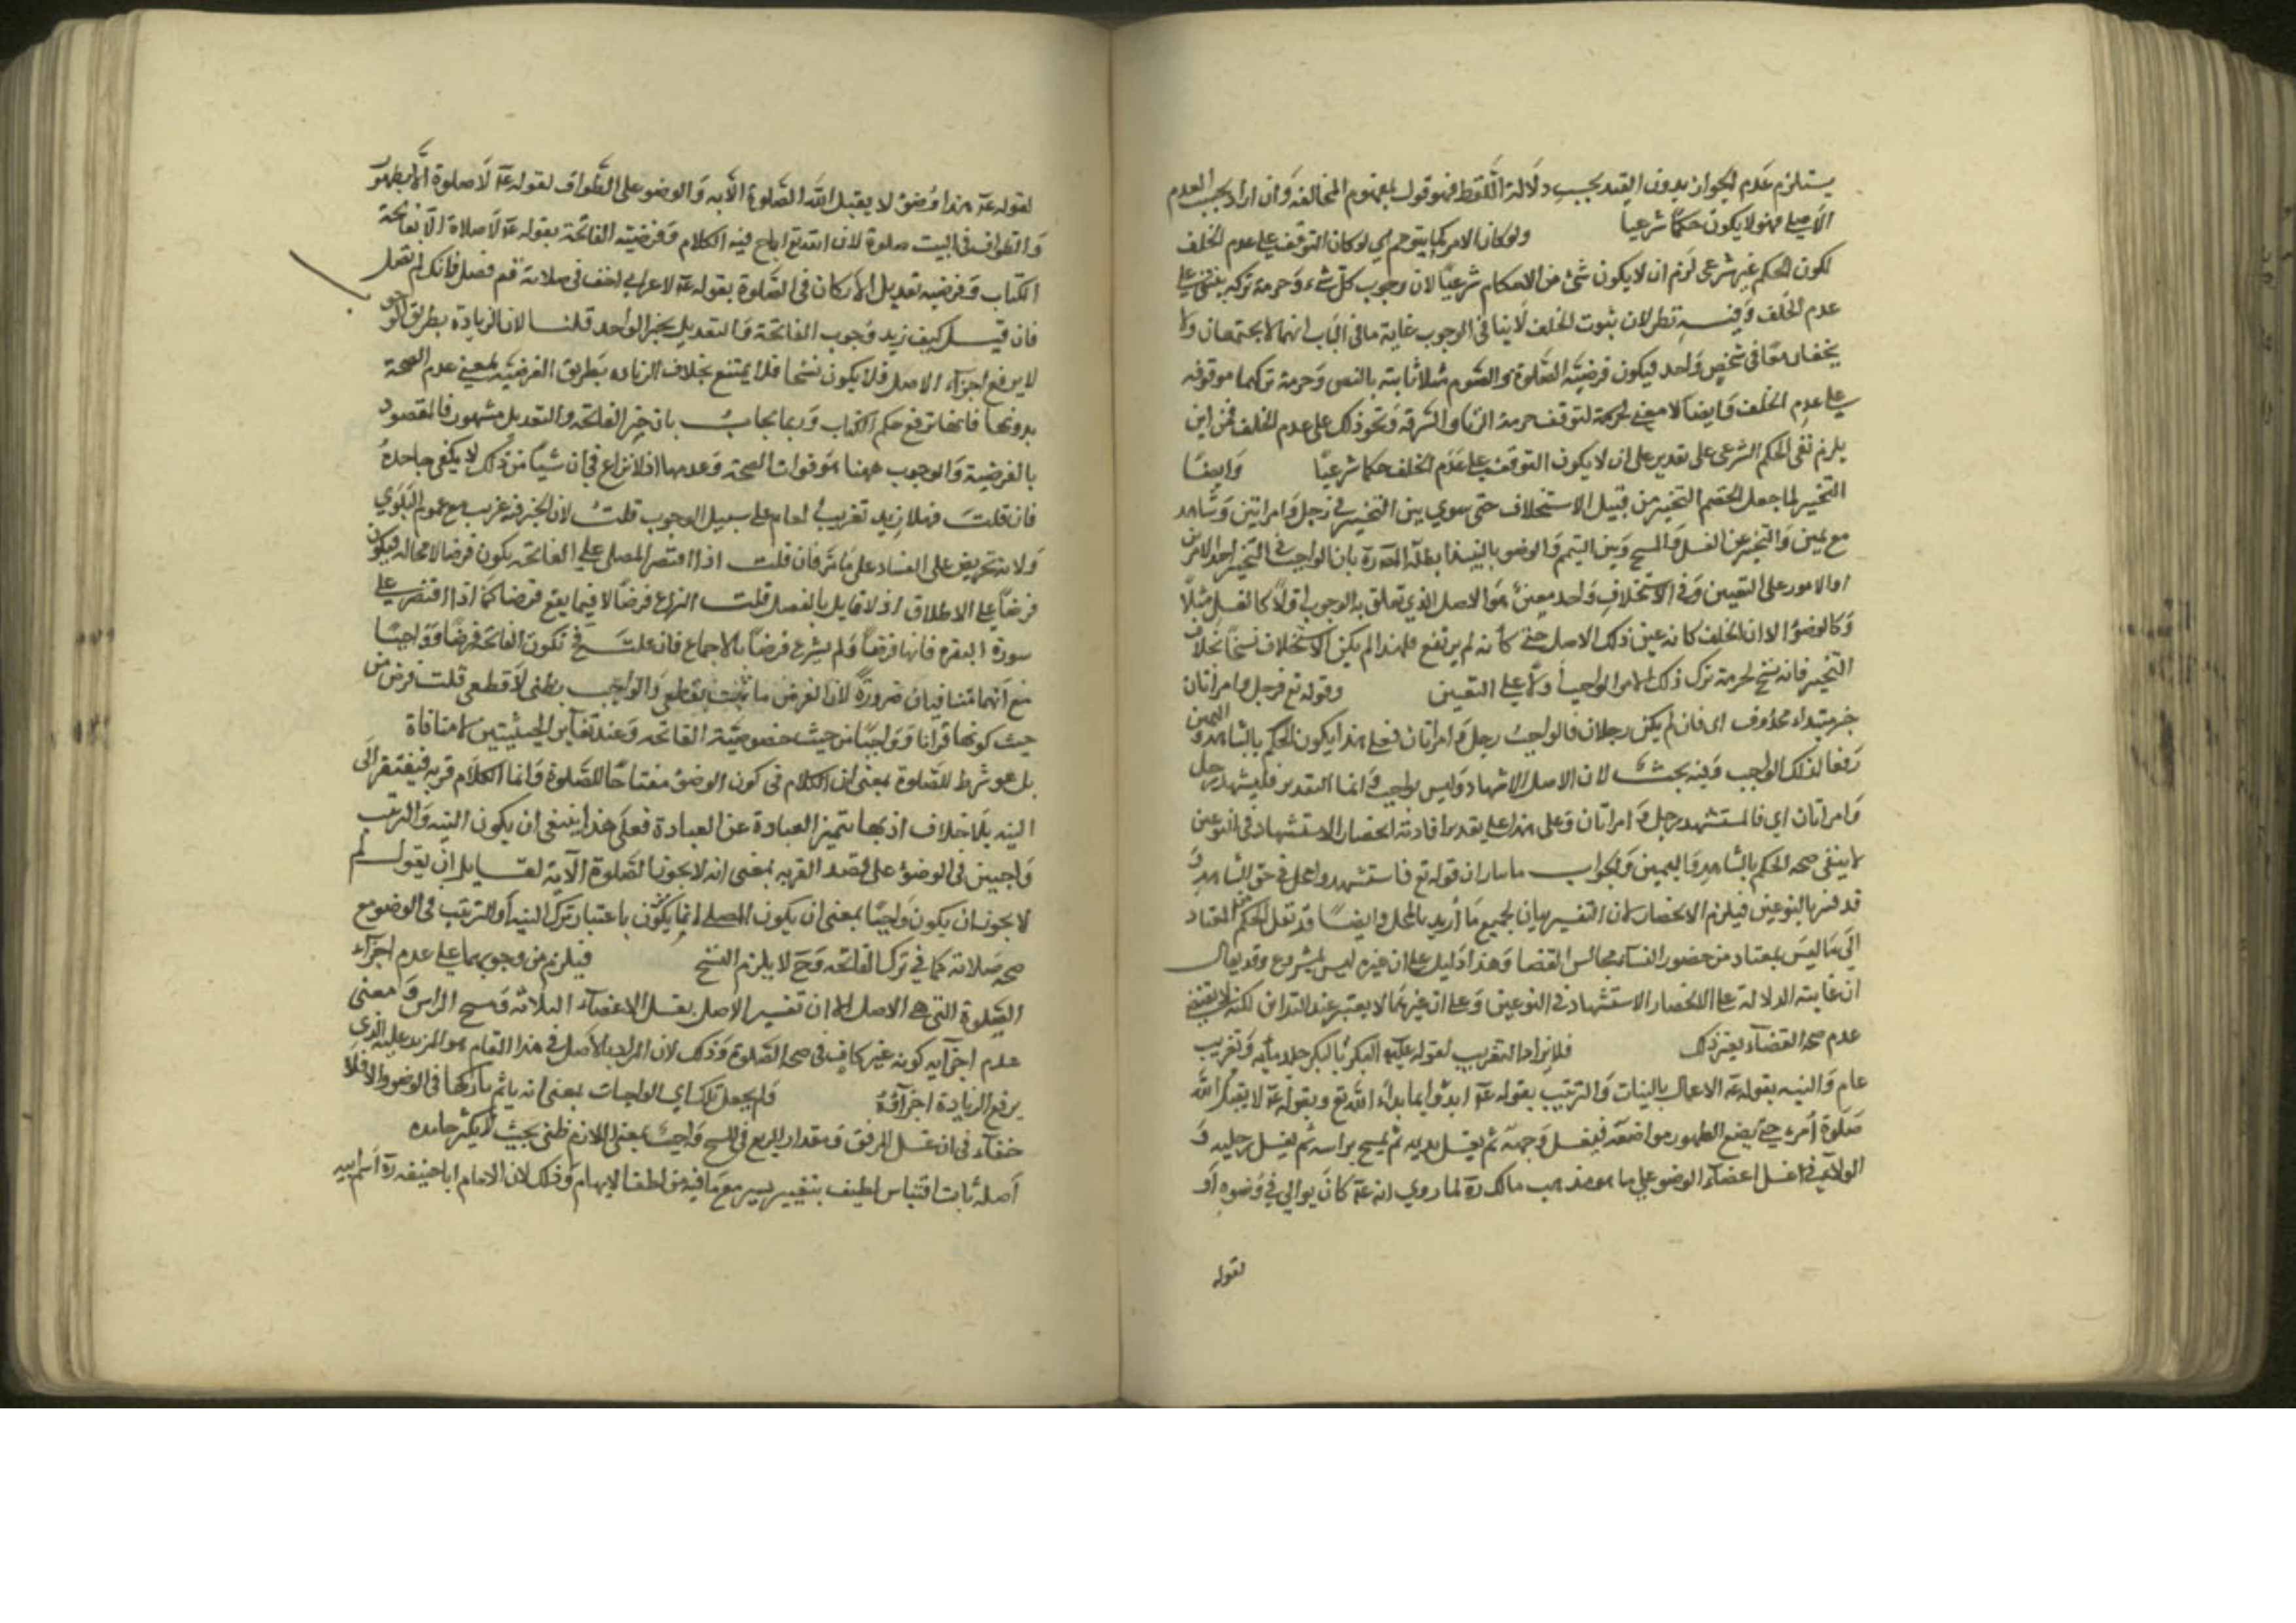 يستلزم عدم الجواز بدون القيد بحسب دلالة اللفظ فهو قول بمفهوم المخالفة وان اراد بحسب العدم
الاصلي فهو لا يكون حكما شرعيا ولو كان الامر كما يتوهم اي لو كان التوقف على عدم الخلف
لكون الحكم غير شرعى لزم ان لا يكون شئ من الاحكام شرعيا لان وجوب كل شئ وحرمة تركه يبتنى على
عدم الخلف وفيه نظر لان ثبوت الخلف لا ينافى الوجوب غاية ما فى الباب انهما لا يجتمعان ولا
معا فى شخص واحد فيكون فرضية الصلوة والصوم مثلا ثابته بالنص وحرمة تركهما موقوفه
على عدم الخلف وايضا لا معنى لتوقف حرمة الزنا والسرقه ونحو ذلك على عدم الخلف فمن اين
يلزم نفى الحكم الشرعى على تقدير ان لا يكون التوقف على عدم الخلف حكما شرعيا وايضا
التخيير لما جعل الخصم التخيير من قبيل الاستخلاف حتى سوي بين التخيير فى رجل وامراتين وشاهد
مع يمين والتخيير عن الغسل والمسح وبين التيمم والوضو بالنبيذ ابطله المص ره بان الواجب فى التخيير احد الامرين
او الامور على التعيين وفى الاستخلاف واحد معين هو الاصل الذي تعلق به الوجوب اولا كالغسل مثلا
وكالوضوء الا ان الخلف كانه عين ذلك الاصل حتى كانه لم يرتفع فلهذا لم يكن الاستخلاف نسخا بخلاف
التخيير فانه نسخ لحرمة ترك ذلك الامر الواجب اولا على التعيين وقوله تع فرجل وامراتان
خبر مبتداء محذوف اى فان لم يكن رجلان فالواجب رجل وامراتان فعلى هذا يكون الحكم بالشاهد واليمين
رفعا لذلك الواجب وفيه بحث لان الاصل الاشهاد وليس بواجب وانما التقدير فليشهد رجل
وامراتان اي فالمستشهد رجل وامراتان وعلى هذا على تقدير افادته انحصار الاستشهاد فى النوعين
لا ينفى صحه الحكم بالشاهد واليمين والجواب ان قوله تع فاستشهدوا مجمل فى حق الشاهد
قد فسر بالنوعين فيلزم الانحصار لان التفسير بيان لجميع ما اريد بالمجمل وايضا قد نقل الحكم من المعتاد
الى ما ليس بمعتاد من حضور النساء مجالس القضا وهذا دليل على ان غيره ليس بمشروع وقد يقال
ان غايته الدلالة على انحصار الاستشهاد فى النوعين وعلى ان غيرهما لا يعتبر عند التداين لكنه لا يقتضى
عدم صحه القضاء بغير ذلك فلا يزاد التغريب لقوله عليه البكر بالبكر جلد مأيه وتغريب
عام والنيه بقوله عه الاعمال بالنيات والترتيب بقوله عه ابدؤا بما بداء الله تع وبقوله عه لا يقبل الله
صلوة امرء حتى يضع الطهور مواضعه فيغسل وجهه ثم يغسل يديه ثم يمسح براسه ثم يغسل رجليه و
الولاء فى غسل اعضاء الوضو على ما هو مذهب مالك ره لما روي انه عه كان يوالي فى وضوه او
لقوله
لقوله عه هذا وضوء لا يقبل الله الصلوة الا به والوضو على الطواف لقوله عه لا صلوة الا بطهور
والطواف فى البيت صلوة لان الله تع اباح فيه الكلام وفرضيته الفاتحة بقوله عه لا صلاة الا بفاتحة
الكتاب وفرضيه تعديل الاركان فى الصلوة بقوله عه لاعرابى اخف فى صلاته قم فصل فانك لم تصل
فان قيل كيف زيد وجوب الفاتحة والتعديل بخبر الواحد قلنا لان الزيادة بطريق الوجوب
لا يرفع اجزاء الاصل فلا يكون نسخا فلا يمتنع بخلاف الزياده بطريق الفرضيه بمعنى عدم الصحة
بدونها فانها ترفع حكم الكتاب وربما يجاب بان خبر الفاتحه والتعديل مشهور فالمقصود
بالفرضية والوجوب ههنا هو فوات الصحة وعدمها اذ لا نزاع فى ان شيأ من ذلك لا يكفر جاحده
فان قلت فهلا زيد تغريب العام على سبيل الوجوب قلت لان الخبر فيه غريب مع عموم البلوي
ولانه تحريض على الفساد على ما مر فان قلت اذا اقتصر المصلى على الفاتحه يكون فرضا لا محاله فيكون
فرضا على الاطلاق اذ لا قايل بالفصل قلت النزاع فرضا لا فيما يقع فرضا كما اذا اقتصر على
سورة البقره فانها فرضا ولم يشرع فرضا بالاجماع فان قلت فح تكون الفاتحه فرضا وواجبا
مع انهما متنافيان ضرورة لان الفرض ما ثبت بقطعى والواجب بظنى لا قطعى قلت فرض من
حيث كونها قرانا وواجبا من حيث خصوصية الفاتحه وعند تغاير الحيثيتين لا منافاة
بل هو شرط للصلوة بمعنى ان الكلام فى كون الوضوء مفتاحا للصلوة وانما الكلام قربه فيفتقر الى
النيه بلا خلاف اذ بها يتميز العبادة عن العبادة فعلى هذا ينبغى ان يكون النيه والترتيب
واجبين فى الوضوء على قصد القربه بمعنى انه لا يجوز الصلوة الآيه لقايل ان يقول لم
لا يجوز ان يكون واجبا بمعنى ان يكون المصلى اثما باعتبار ترك النيه او الترتيب فى الوضو مع
صحه صلاته كما فى ترك الفاتحه وح لا يلزم النسخ فيلزم من وجوبهما على عدم اجزاء
الصلوة التى هى الاصل الا ان تفسير الاصل بغسل الاعضاء الثلاثه ومسح الراس ومعنى
عدم اجزايه كونه غير كاف فى صحه الصلوة وذلك لان المراد بالاصل فى هذا المقام هو المزيد عليه الذي
يرفع الزيادة اجزاؤه ولم يجعل تلك اي الواجبات بمعنى انه ياثم تاركها فى الوضو والا فلا
خفاء فى ان غسل المرفق ومقدار الربع فى المسح واجب بمعنى اللازم ظنى بحيث لا يكفر جاحده
اصله ثابت اقتباس لطيف بتغيير يسير مع ما فيه من لطف الايهام وذلك لان الامام ابا حنيفه ره اسم ابيه